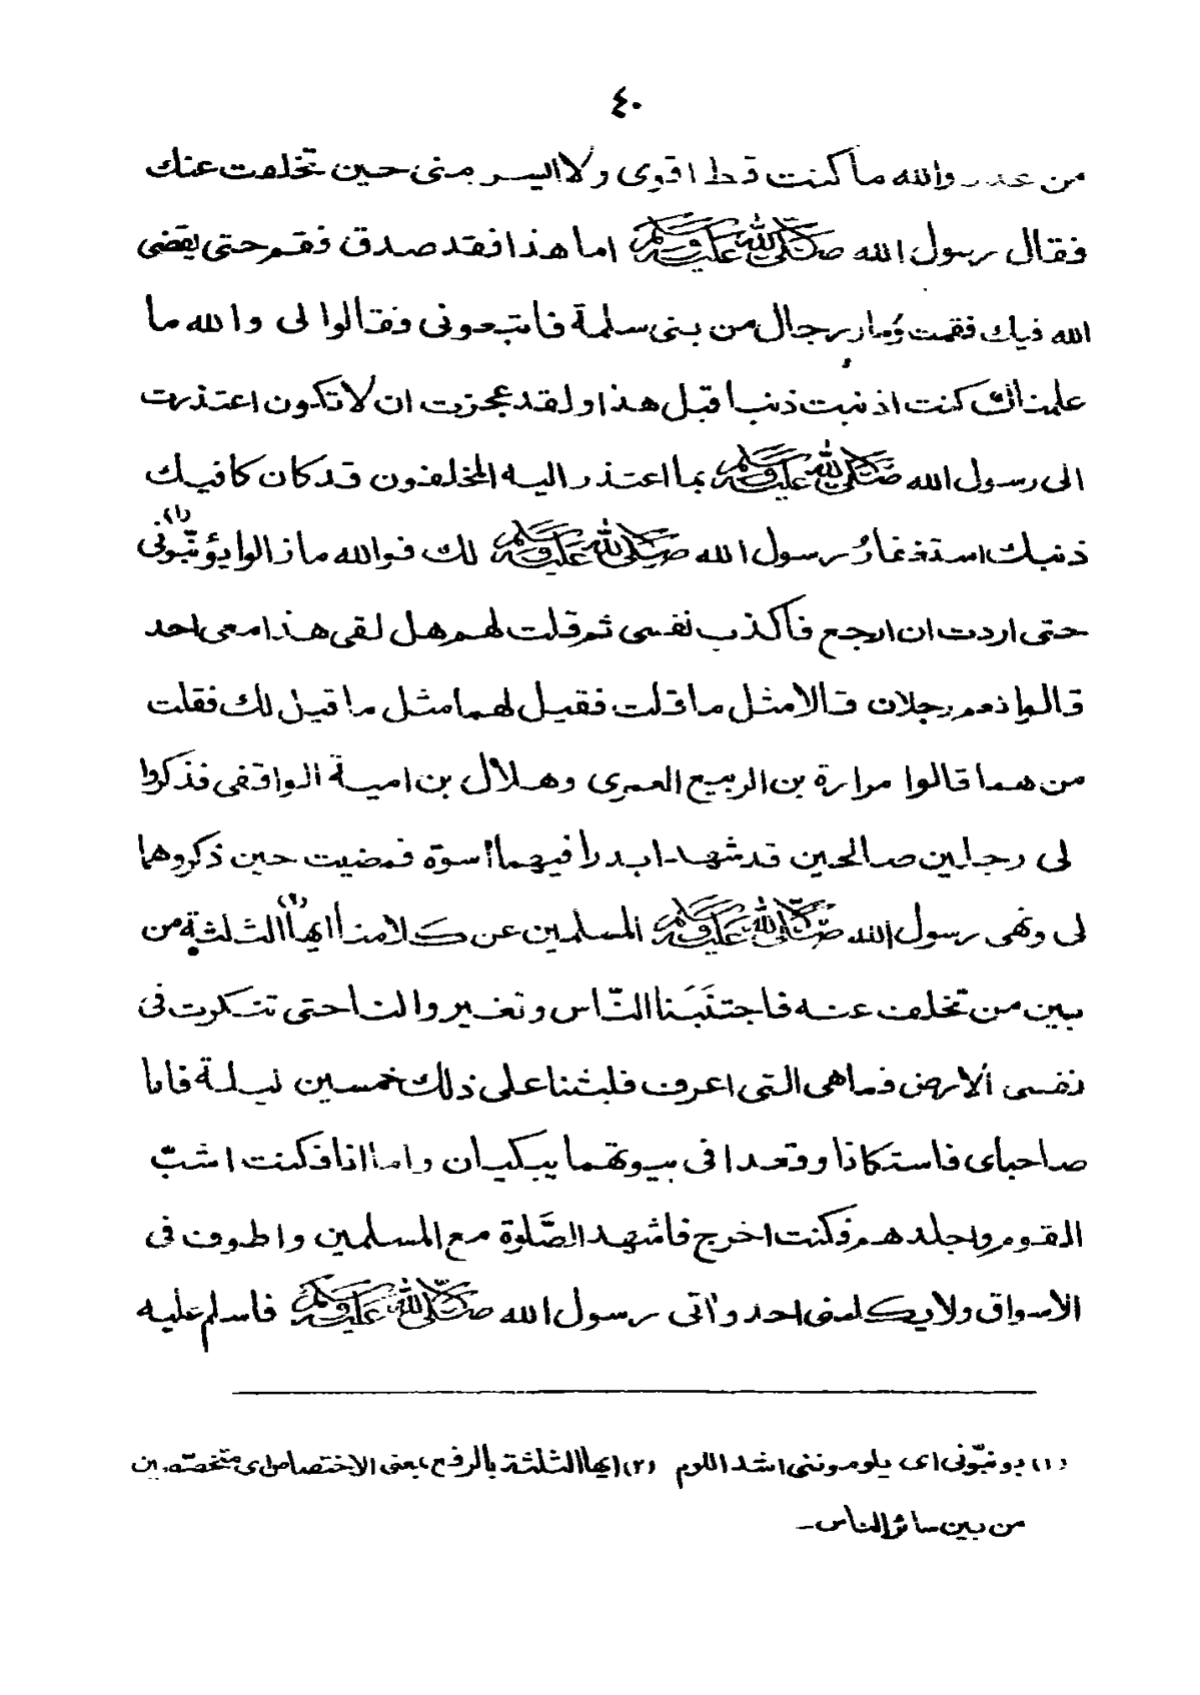 ٤٠
من عذر والله ما كنت قط اقوى ولا ايسر منى حين تخلفت عنك
فقال رسول الله صَلَّى اللهُ عَلَيْهِ وَسَلَّم اما هذا فقد صدق فقم حتى يقضى
الله فيك فقمت وثار رجال من بنى سلمة فاتبعونى فقالوا لى والله ما
علمناك كنت اذنبت ذنبا قبل هذا ولقد عجزت ان لا تكون اعتذرت
الى رسول الله صَلَّى اللهُ عَلَيْهِ وَسَلَّم بما اعتذر اليه المخلفون قد كان كافيك
ذنبك استغفارُ رسول الله صَلَّى اللهُ عَلَيْهِ وَسَلَّم لك فوالله ما زالوا يؤنّبونى (١)
حتى اردت ان ارجع فاكذب نفسى ثم قلت لهم هل لقى هذا معى احد
قالوا نعم رجلان قالا مثل ما قلت فقيل لهما مثل ما قيل لك فقلت
من هما قالوا مرارة بن الربيع العمرى وهلال بن امية الواقفى فذكروا
لى رجلين صالحين قد شهدا بدرا فيهما اسوة فمضيت حين ذكروهما
لى ونهى رسول الله صَلَّى اللهُ عَلَيْهِ وَسَلَّم المسلمين عن كلامنا ايها (٢) الثلثة من
بين من تخلف عنه فاجتنَبَنا النّاس وتغيروا لنا حتى تنكرت فى
نفسى الارض فما هى التى اعرف فلبثنا على ذلك خمسين ليلة فاما
صاحباى فاستكانا وقعدا فى بيوتهما يبكيان واما انا فكنت اشبّ
القوم واجلدهم فكنت اخرج فاشهد الصَّلوة مع المسلمين واطوف فى
الاسواق ولا يكلمنى احد وآتى رسول الله صَلَّى اللهُ عَلَيْهِ وَسَلَّم فاسلم عليه
(١) يونّبونى اى يلوموننى اشد اللوم (٢) ايها الثلثة بالرفع بمعنى الاختصاص اى متخصّصين
من بين سائر الناس ـ